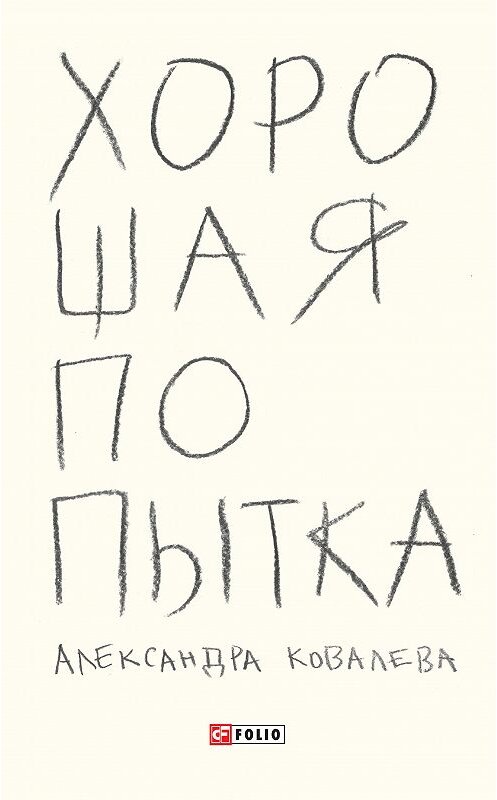 ХОРО
ШАЯ
ПО
ПЫТКА
АЛЕКСАНДРА КОВАЛЕВА
CF FOLIO